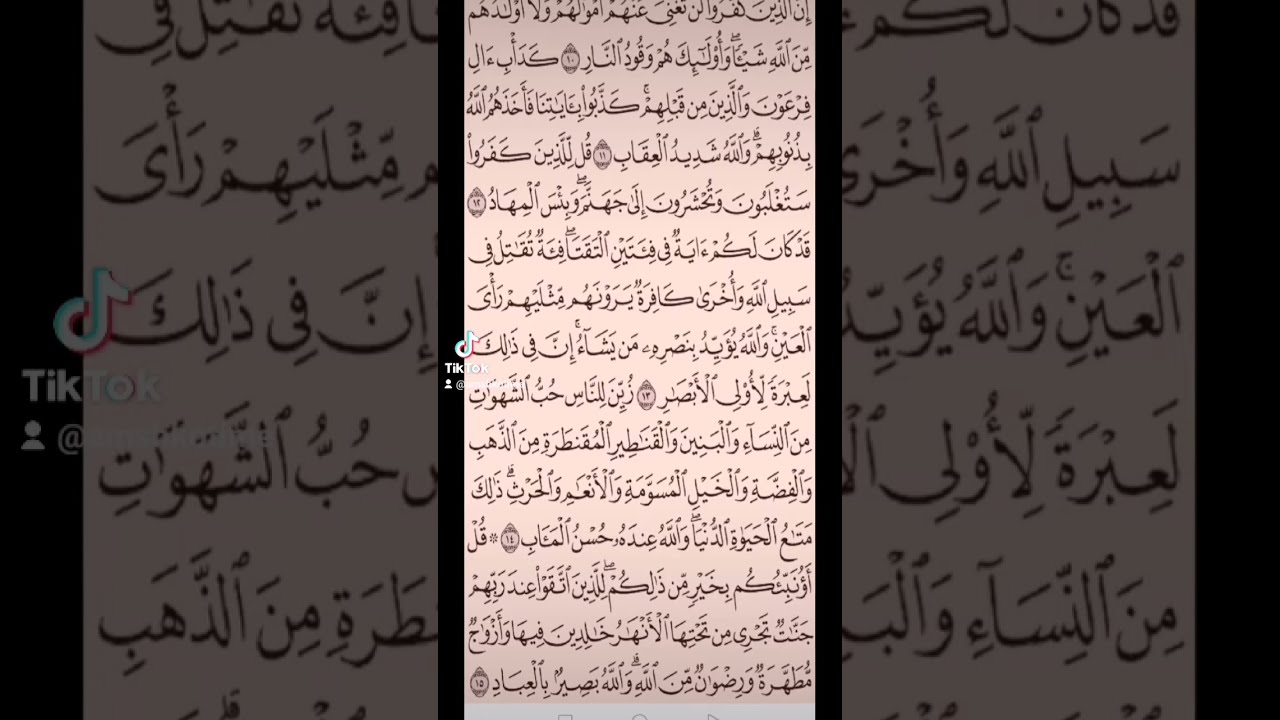 إِنَّ الَّذِينَ كَفَرُوا لَن تُغْنِيَ عَنْهُمْ أَمْوَالُهُمْ وَلَا أَوْلَادُهُم
مِّنَ اللَّهِ شَيْئًا ۖ وَأُولَٰئِكَ هُمْ وَقُودُ النَّارِ ١٠ كَدَأْبِ ءَالِ
فِرْعَوْنَ وَالَّذِينَ مِن قَبْلِهِمْ ۚ كَذَّبُوا بِـَٔايَاتِنَا فَأَخَذَهُمُ اللَّهُ
بِذُنُوبِهِمْ ۗ وَاللَّهُ شَدِيدُ الْعِقَابِ ١١ قُل لِّلَّذِينَ كَفَرُوا
سَتُغْلَبُونَ وَتُحْشَرُونَ إِلَىٰ جَهَنَّمَ ۚ وَبِئْسَ الْمِهَادُ ١٢
قَدْ كَانَ لَكُمْ ءَايَةٌ فِي فِئَتَيْنِ الْتَقَتَا ۖ فِئَةٌ تُقَاتِلُ فِي
سَبِيلِ اللَّهِ وَأُخْرَىٰ كَافِرَةٌ يَرَوْنَهُم مِّثْلَيْهِمْ رَأْيَ
الْعَيْنِ ۚ وَاللَّهُ يُؤَيِّدُ بِنَصْرِهِ مَن يَشَاءُ ۗ إِنَّ فِي ذَٰلِكَ
لَعِبْرَةً لِّأُولِي الْأَبْصَارِ ١٣ زُيِّنَ لِلنَّاسِ حُبُّ الشَّهَوَاتِ
مِنَ النِّسَاءِ وَالْبَنِينَ وَالْقَنَاطِيرِ الْمُقَنطَرَةِ مِنَ الذَّهَبِ
وَالْفِضَّةِ وَالْخَيْلِ الْمُسَوَّمَةِ وَالْأَنْعَامِ وَالْحَرْثِ ۗ ذَٰلِكَ
مَتَاعُ الْحَيَوٰةِ الدُّنْيَا ۖ وَاللَّهُ عِندَهُ حُسْنُ الْمَـَٔابِ ١٤ ۞ قُلْ
أَؤُنَبِّئُكُم بِخَيْرٍ مِّن ذَٰلِكُمْ ۚ لِلَّذِينَ اتَّقَوْا عِندَ رَبِّهِمْ
جَنَّاتٌ تَجْرِي مِن تَحْتِهَا الْأَنْهَارُ خَالِدِينَ فِيهَا وَأَزْوَاجٌ
مُّطَهَّرَةٌ وَرِضْوَانٌ مِّنَ اللَّهِ ۗ وَاللَّهُ بَصِيرٌ بِالْعِبَادِ ١٥
TikTok